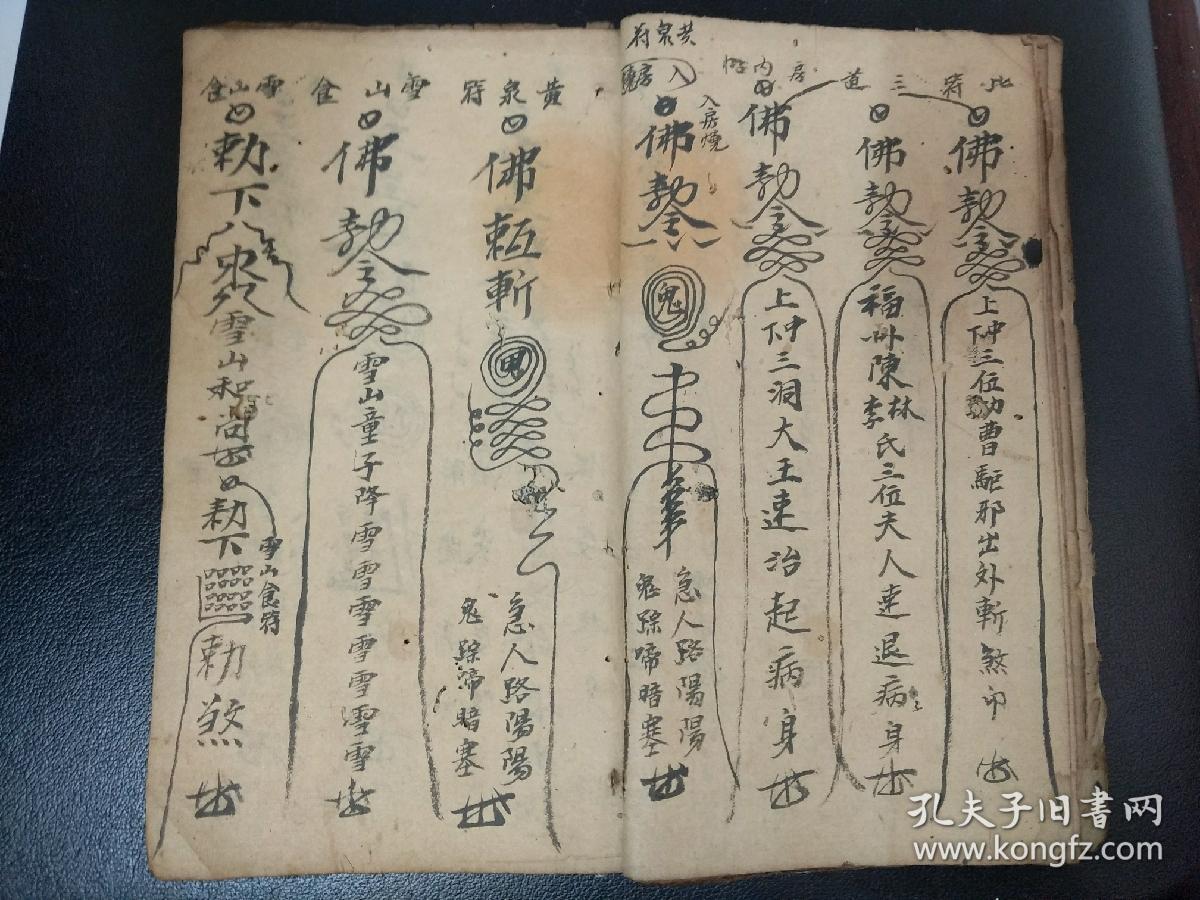 此符三道
佛勅令
上中下三位功曹駈邪出外斬煞印
佛勅令
福州陳林李氏三位夫人速退病身
房內
佛勅令
上中下三洞大王速治起病身
黄泉符
入房燒
入房燒
佛勅令
鬼
急人路陽陽
鬼踪啼暗塞
黄泉符
佛
斬
鬼
急人路陽陽
鬼踪啼暗塞
雪山食
佛勅令
雪山童子降雪雪雪雪雪雪雪
雪山食
勅下
雪山和尚
勅下
雪山食符
勅煞
孔夫子旧书网
www.kongfz.com